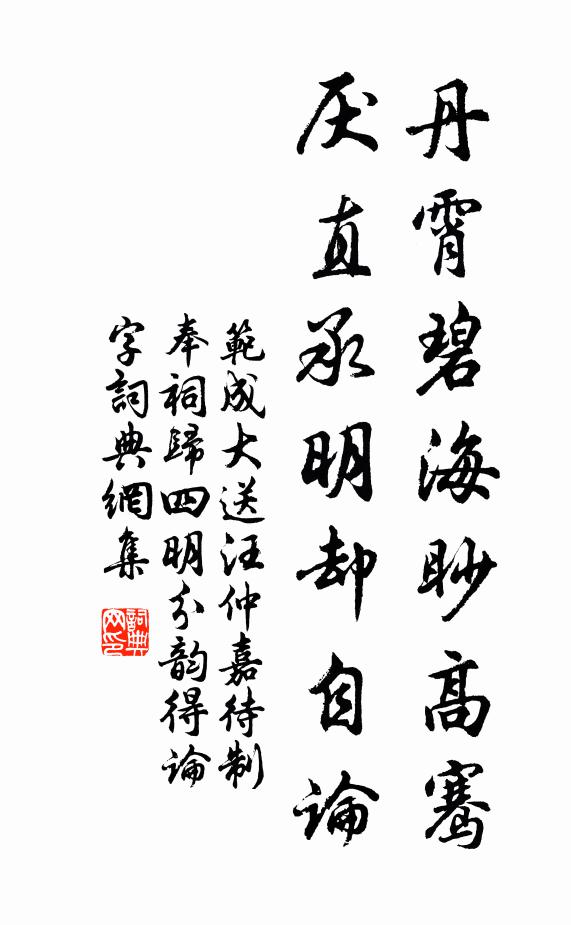 丹霄碧海眇高騫
厌直承明却自論
範成大送汪仲嘉待制
奉祠歸四明分韵得論
字詞典網集
詞典
网印